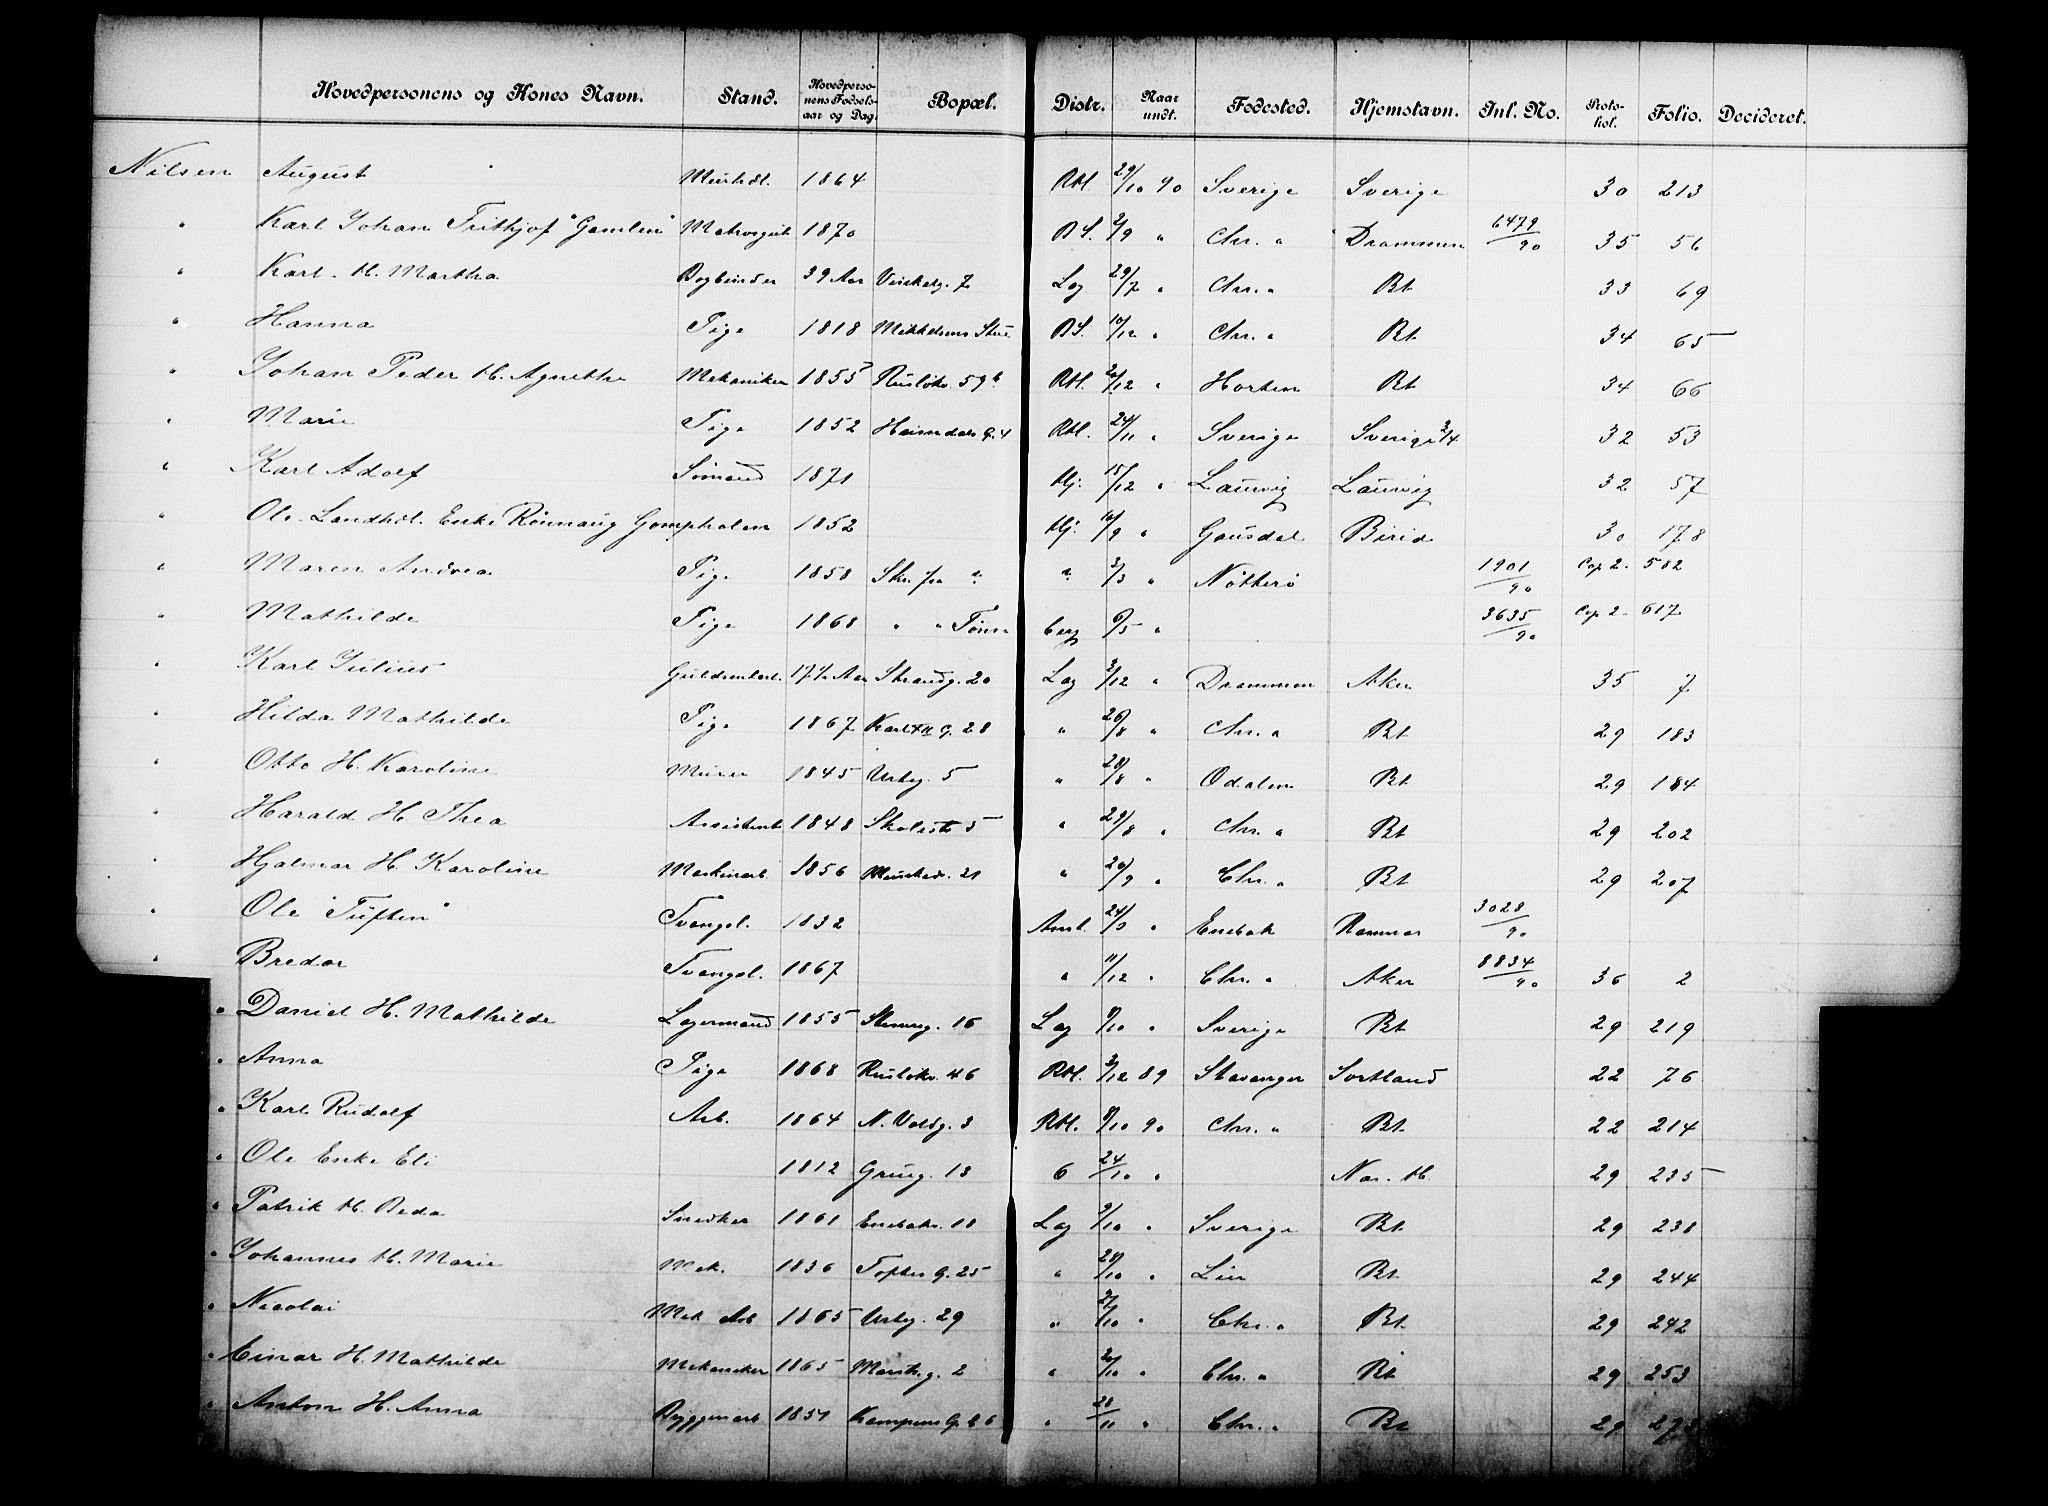 Hovedpersonens og Kones Navn. Stand. Hovedpersonens Fødselsaar og Dag. Bopæl. Distr. Naar undt. Fødested. Hjemstavn. Inl. No. Protokol. Folio. Decideret.
Nilsen August 1864 Rtl. 29/10 90 Sverige Sverige 30 213
" Karl Johan Frithjof "Gamlin" 1870 B.S. 2/9 " Chr. a Drammen 6479/90 35 56
" Karl. H. Martha Bogbinder 39 Aar 7 Lag 29/7 " Chr. a Bt 33 69
" Hanna Pige 1818 Mikkelsens Stue B.S. 10/12 " Chr. a Bt 34 65
" Johan Peder H. Agnethe Mekaniker 1855 Rusløkv. 59b Rtl. /12 " Horten Bt 34 66
" Marie Pige 1852 Heimdals G. 4 Rtl. 24/11 " Sverige Sverige 3/4 32 53
" Karl Adolf Sømand 1871 Hj. 15/12 " Laurvig Laurvig 32 57
" Ole. Landhdl. Enke Rønnaug Gompholen 1852 Hj. 16/9 " Gausdal Birid 30 178
" Maren Andrea Pige 1858 " " 3/3 " Nøtterø 1901/90 Cop 2. 502
" Mathilde Pige 1868 " " Tøns= berg 6/5 " 3635/90 Cop 2 - 617
" Karl Julius Guldsmkarl. 17½ Aar Strandg. 20 Lag 3/12 " Drammen Aker 35 7
" Hilda Mathilde Pige 1867 Karl XII G. 28 " 26/8 " Chr. a Bt 29 183
" Otto H. Karoline Murer 1845 Urteg. 5 " 28/8 " Odalen Bt 29 184
" Harald H. Thea Assistent 1848 Skolest 5 " 29/8 " Chr. a Bt 29 202
" Hjalmar H. Karoline Maskinarb. 1856 21 " 20/9 " Chr. a Bt 29 207
" Ole "Tuften" Tvangsl. 1832 Amt. 24/3 " Enebak Ramnas 3028/90
" Bredar Tvangsl. 1867 " 11/12 " Chr. a Aker 8834/90 36 2
" Daniel H. Mathilde Lagermand 1855 Stenersg. 16 Lag 9/10 " Sverige Bt 29 219
" Anna Pige 1868 Rusløkv. 46 Rtl. 3/12 89 Stavanger Sortland 22 76
" Karl Rudolf Arb. 1864 N. Voldg. 3 Rtl. 8/10 90 Chr. a Bt 22 214
" Ole Enke Eli 1812 Grueg. 13 6 24/10 " Nan. H. 29 235
" Patrik H. Beda Snedker 1861 Enebakv. 18 Lag 9/10 " Sverige Bt 29 238
" Johannes H. Marie Mek. 1836 Toftes G. 25 " 28/10 " Lier Bt 29 244
" Nicolai Mek Arb 1865 Urteg. 29 " 27/10 " Chr. a Bt 29 242
" Einar H. Mathilde Mekaniker 1865 Marstg. 2 " /10 " Chr. a Bt 29 253
" Anton H. Anna Byggmarb 1851 Kampens G. 6 " 20/11 " Chr. a Bt 29 273